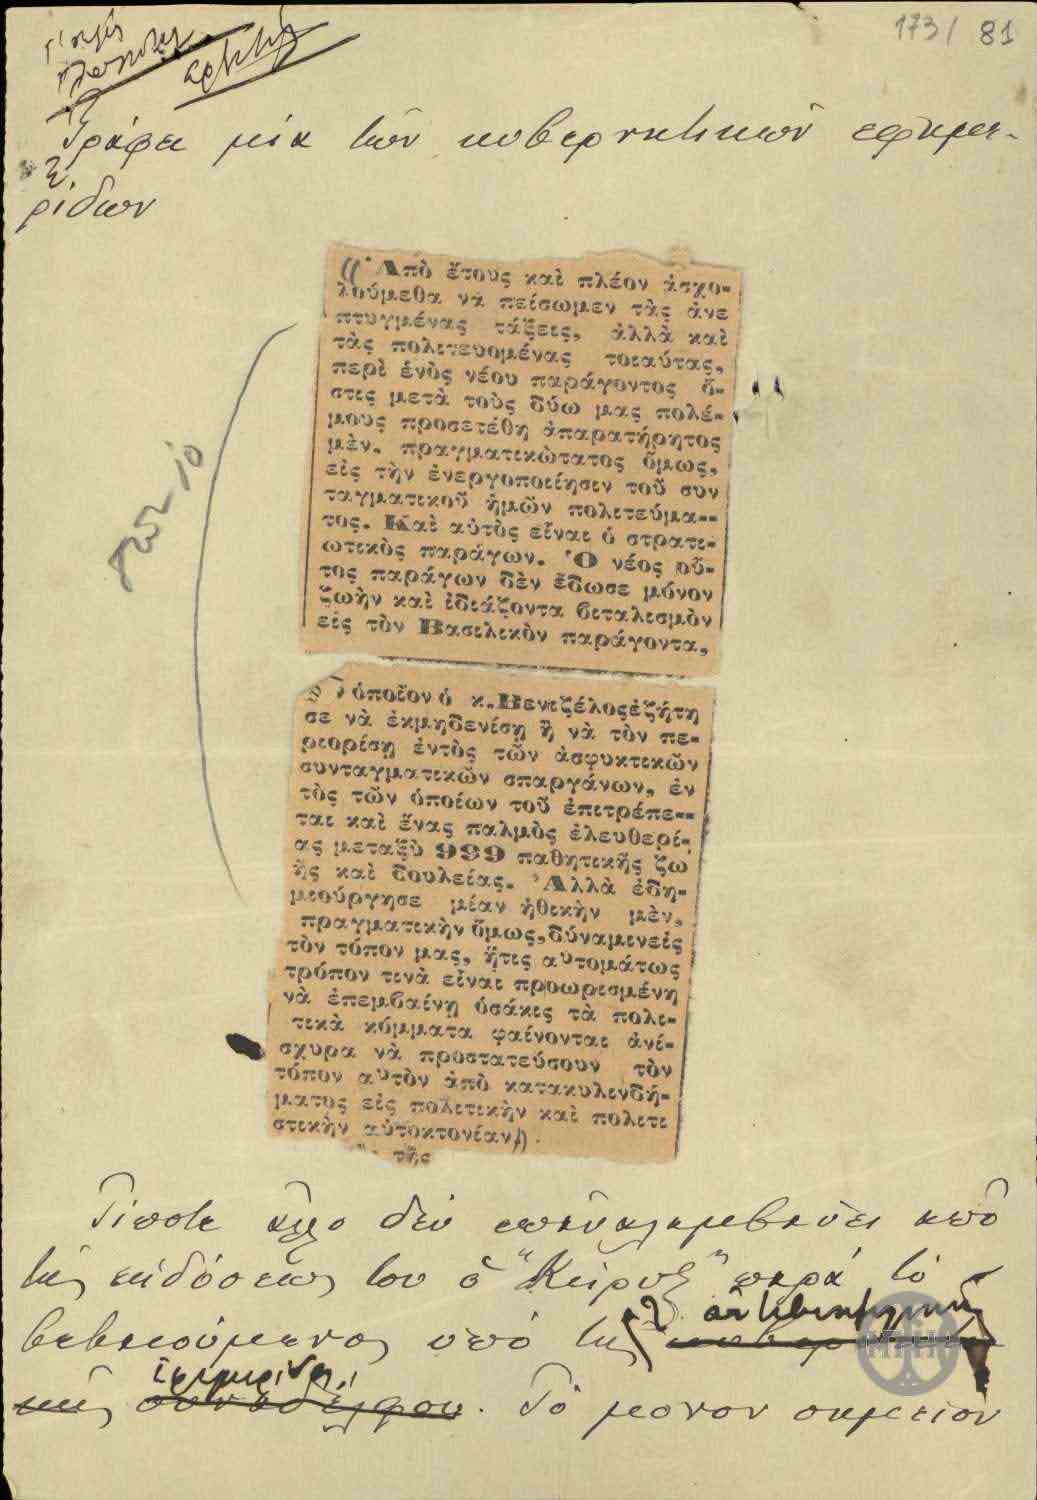 173/ 81
Γράφει μία τῶν κυβερνητικῶν ἐφημε-
ρίδων
((Ἀπὸ ἔτους καὶ πλέον ἀσχο-
λούμεθα νὰ πείσωμεν τὰς ἀνε
πτυγμένας τάξεις, ἀλλὰ καὶ
τὰς πολιτευομένας τοιαύτας,
περὶ ἑνὸς νέου παράγοντος ὅ-
στις μετὰ τοὺς δύω μας πολέ-
μους προσετέθη ἀπαρατήρητος
μὲν, πραγματικώτατος ὅμως,
εἰς τὴν ἐνεργοποιίησιν τοῦ συν
ταγματικοῦ ἡμῶν πολιτεύμα--
τος. Καὶ αὐτὸς εἶναι ὁ στρατι-
ωτικὸς παράγων. Ὁ νέος οὗ-
τος παράγων δὲν ἔδωσε μόνον
ζωὴν καὶ ἰδιάζοντα βιταλισμὸν
εἰς τὸν Βασιλικὸν παράγοντα,
ὁποῖον ὁ κ. Βενιζέλος ἐζήτη
σε νὰ ἐκμηδενίσῃ ἢ νὰ τὸν πε-
ριορίσῃ ἐντὸς τῶν ἀσφυκτικῶν
συνταγματικῶν σπαργάνων, ἐν
τὸς τῶν ὁποίων τοῦ ἐπιτρέπε--
ται καὶ ἕνας παλμὸς ἐλευθερί-
ας μεταξὺ 999 παθητικῆς ζω
ῆς καὶ δουλείας. Ἀλλὰ ἐδη-
μιούργησε μίαν ἠθικὴν μὲν,
πραγματικὴν ὅμως, δύναμιν εἰς
τὸν τόπον μας, ἥτις αυτομάτως
τρόπον τινὰ εἶναι προωρισμένη
νὰ ἐπεμβαίνῃ ὁσάκις τὰ πολι-
τικὰ κόμματα φαίνονται ἀνί-
σχυρα νὰ προστατεύσουν τὸν
τόπον αυτὸν ἀπὸ κατακυλινδή-
ματος εἰς πολιτικὴν καὶ πολιτι
στικὴν αὐτοκτονίαν)).
τῆς
Τίποτε ἄλλο δὲν ἐπαναλαμβάνει ἀπὸ
τὰς ἐκδόσεις του ὁ "Κῆρυξ" παρὰ τὸ
βεβαιούμενον ὑπὸ τῆς
ἐφημερίδος
συναδέλφου. Τὸ μόνον σημεῖον